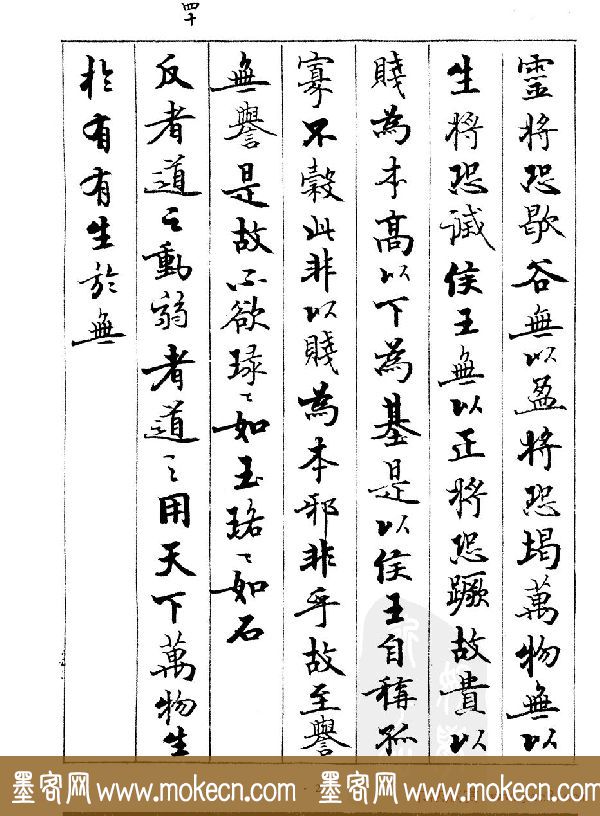 四十
靈將恐歇谷無以盈將恐竭萬物無以
生將恐滅侯王無以正將恐蹶故貴以
賤為本高以下為基是以侯王自稱孤
寡不穀此非以賤為本邪非乎故至譽
無譽是故不欲琭〻如玉珞〻如石
反者道之動弱者道之用天下萬物生
於有有生於無
墨客网 www.mokecn.com · 墨客网 www.mokecn.com